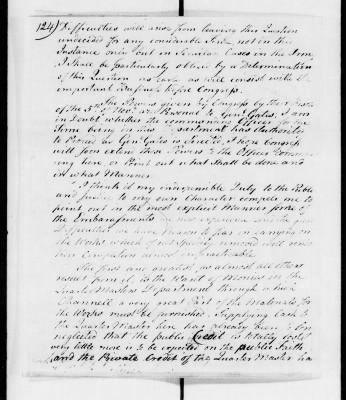 124) Difficulties will arise from leaving this Question
undecided for any considerable time, not in this
Instance only but in Similar Cases in the Army
I shall be particularly obliged by a Determination
of this Question as early as will consist with the
important business before Congress.
The Powers given by Congress by their
of the 5th of Novr. and Personal to Genl. Gates, I am
in Doubt whether the commanding Officer for the
time being in this Department has authorities
to Proceed as Genl. Gates is directed, I hope Congress
will soon extend these Powers to the Officer Command
ing here, or Point out what shall be done and
in what Manner.
I think it my indispensable Duty to the Public
and Justice to my own Character compels me to
point out in the most explicit Manner some of
the Embarrassments we now experience and the greater
Difficulties we have Reason to fear in carrying on
the Works which if not speedily removed will
render their Completion almost impracticable
The first and greatest, as almost all others
issues from it, is the Want of Monies in the
Quarter Master Department through which
Channel a very great Part of the Materials for
the Works must be furnished. Supplying Cash to
the Quarter Master here has already been so long
neglected that the public Credit is totally lost
very little more is to be expected on the public Faith
and the Private Credit of the Quarter Master has